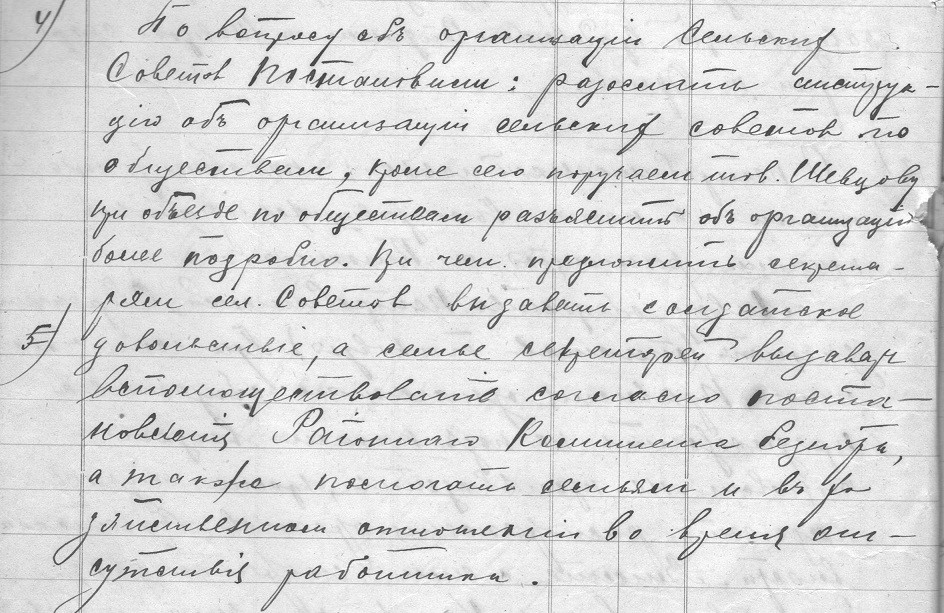 4) По вопросу объ организаціи Сельских
Советов Постановили: разослать инструк-
цію объ организаціи сельских советов по
обществам, кроме сего поручаем тов. Шевцову
при объезде по обществам разъяснить объ организаціи
более подробно. При чем предложить секрета-
рям сел. Советов выдавать солдатское
5) довольствіе, а семье секретарей выдавать
вспомоществовать согласно поста-
новленія Районнаго Комитета бедноты,
а также помогать семьям и въ хо
зяйственном отношеніи во время от-
сутствія работника.